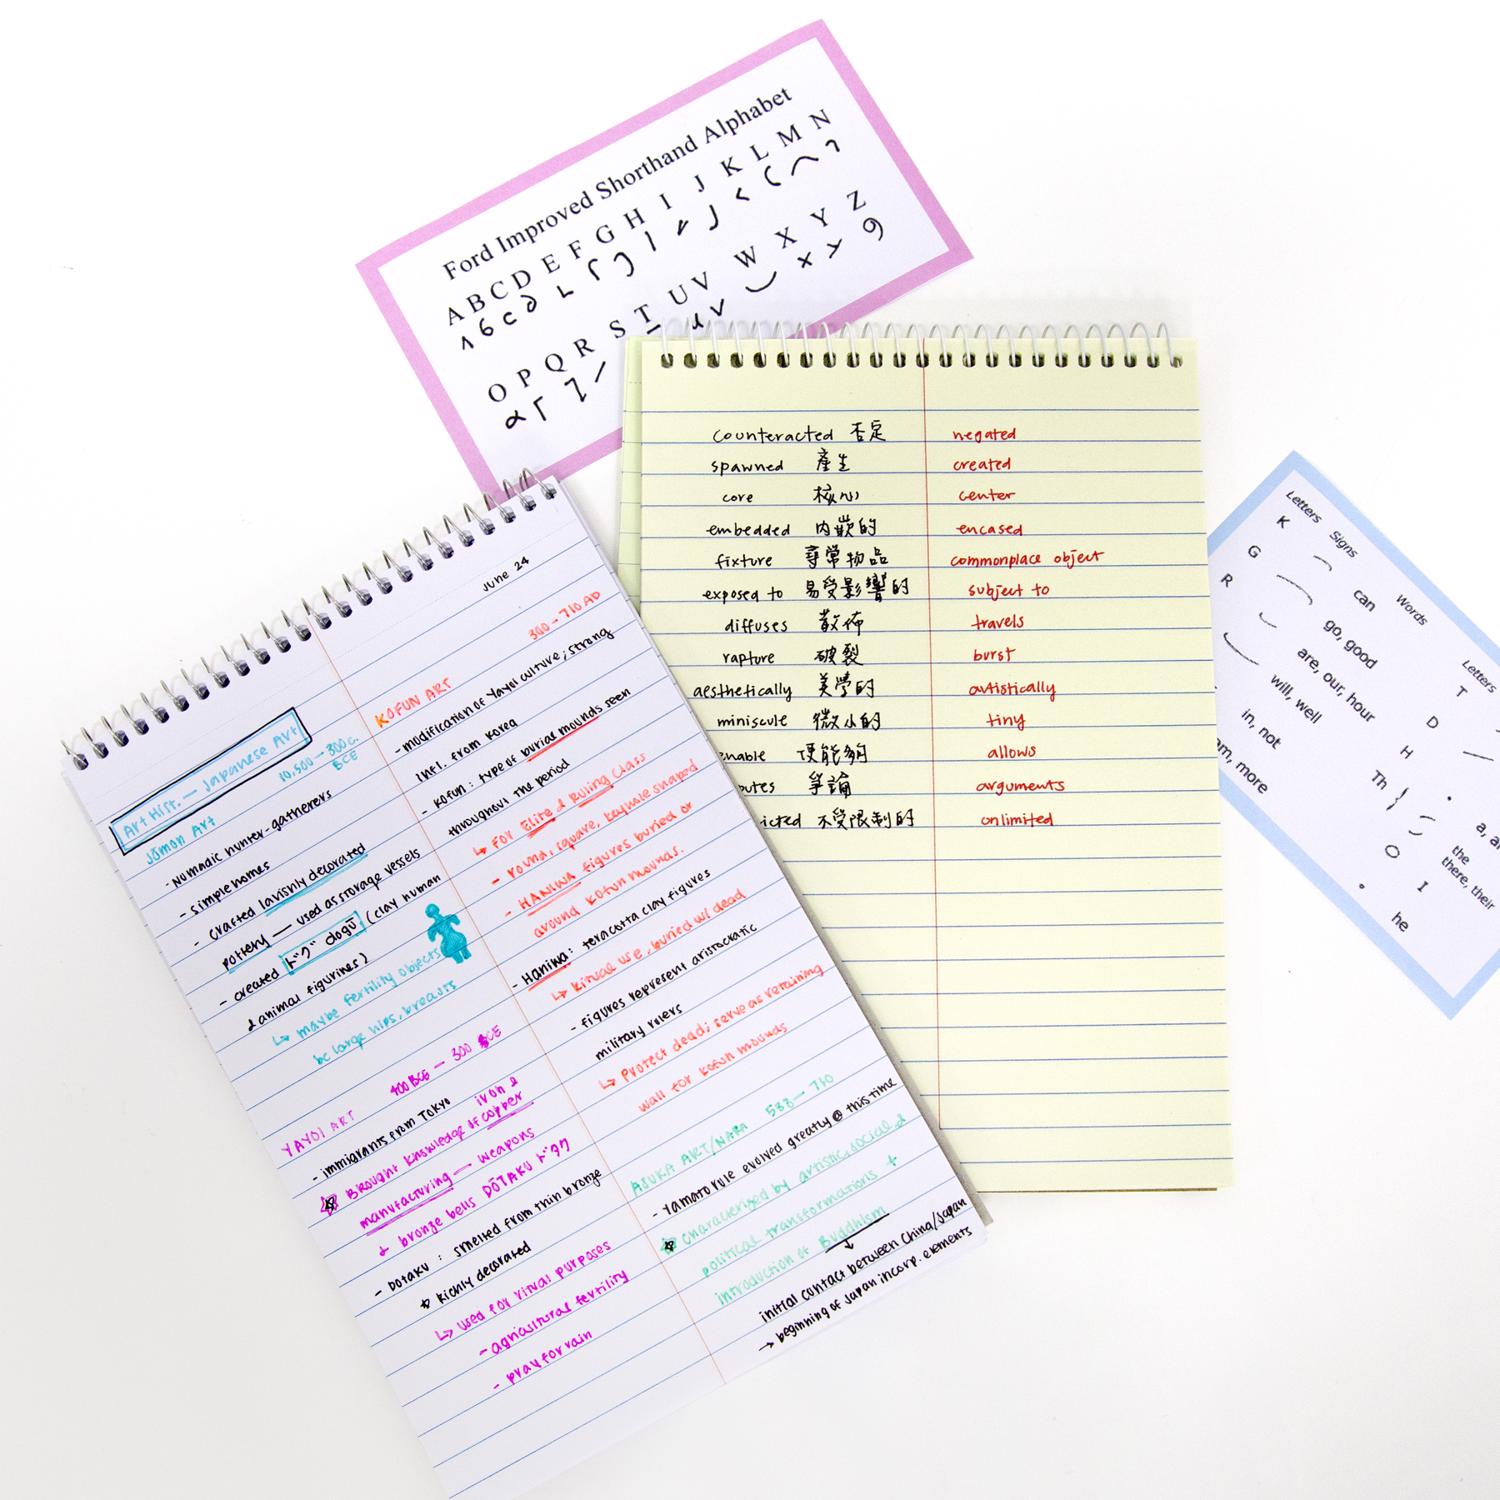 Ford Improved Shorthand Alphabet
A B C D E F G H I J K L M N
O P Q R S T U V W X Y Z
counteracted 否定 negated
spawned 產生 created
core 核心 center
embedded 內嵌的 encased
fixture 尋常物品 commonplace object
exposed to 易受影響的 subject to
diffuses 散佈 travels
rapture 破裂 burst
aesthetically 美學的 artistically
miniscule 微小的 tiny
enable 使能夠 allows
putes 爭論 arguments
icted 不受限制的 unlimited
June 24
Art Hist. — Japanese Art
10,500 → 300c. BCE
Jōmon Art
- Nomadic hunter-gatherers
- simple homes
- crafted lavishly decorated
pottery — used as storage vessels
- created ドグ dogū (clay human
& animal figurines)
↳ maybe fertility objects
bc large hips, breasts
YAYOI ART 400 BCE — 300 CE
- immigrants from TOKYO
Brought knowledge of copper iron &
manufacturing — weapons
& bronze bells DŌTAKU ドタク
- DOTAKU : smelted from thin bronze
richly decorated
↳ used for ritual purposes
- agricultural fertility
- pray for rain
300 → 710 AD
KOFUN ART
- modification of Yayoi culture; strong
infl. from Korea
- Kofun: type of burial mounds seen
throughout the period
↳ FOR Elite & Ruling Class
- round, square, keyhole shaped
- HANIWA figures buried or
around Kofun mounds.
- Haniwa: teracotta clay figures
↳ Ritual use, buried w/ dead
- figures represent aristocratic
military rulers
↳ Protect dead; serve as retaining
wall for Kofun mounds
ASUKA ART/NARA 538 — 710
- Yamato rule evolved greatly @ this time
characterized by artistic, social &
political transformations +
introduction of Buddhism
↓
initial contact between China/Japan
→ beginning of Japan incorp. elements
Letters Signs Words
K can
G go, good
R are, our, hour
will, well
in, not
am, more
Letters
T
D
H
Th
O
I
a, a
the
there, their
he